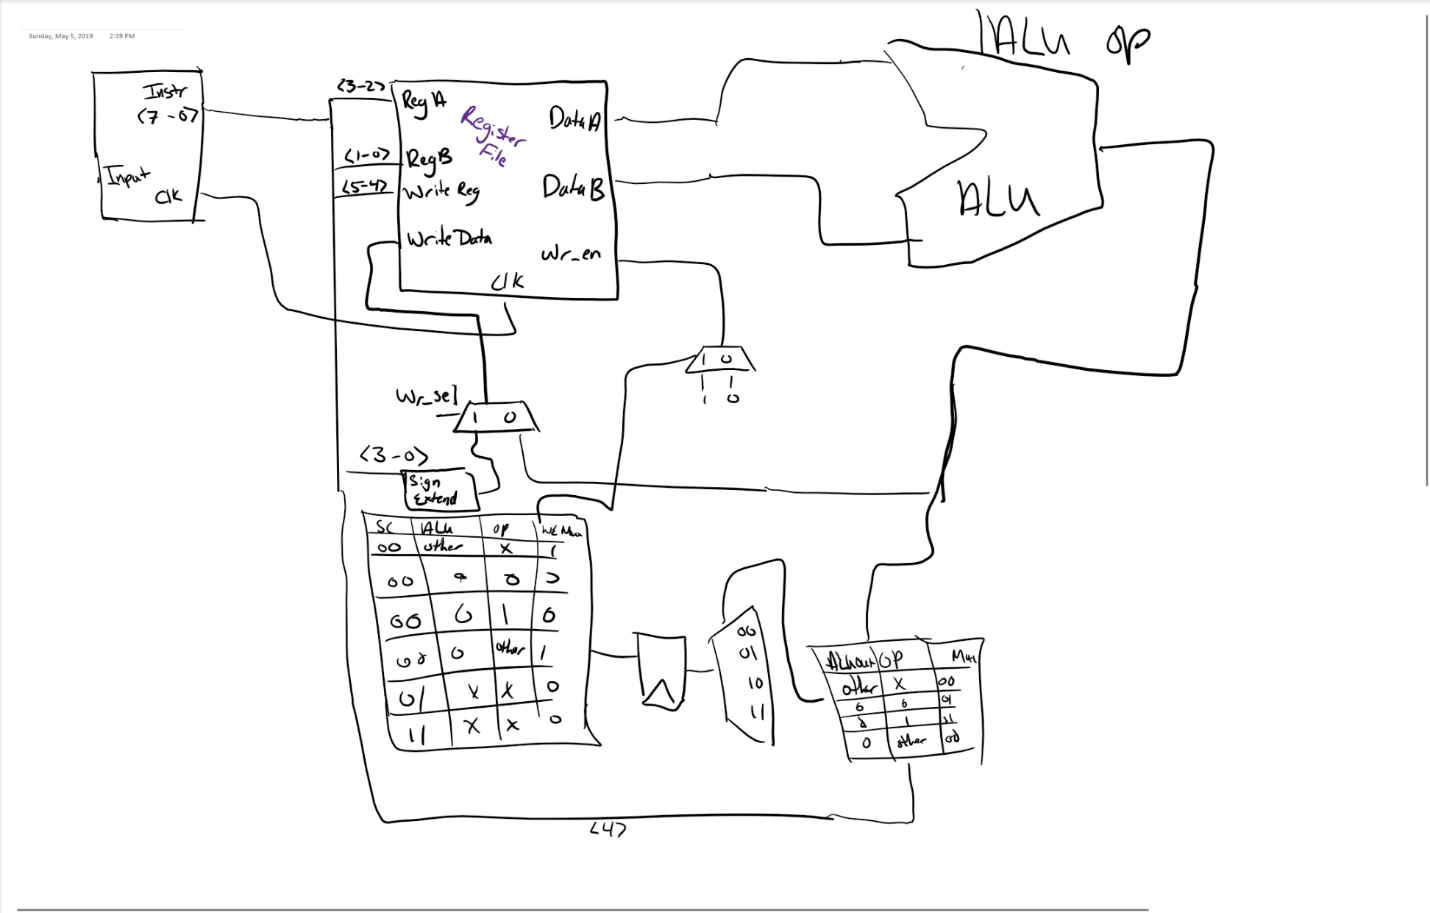 Sunday, May 5, 2019 2:39 PM
ALU op
Instr
<7-0>
Input
Clk
<3-2>
Reg A
<1-0>
RegB
<5-4>
Write Reg
Write Data
Register
File
Data A
Data B
Wr_en
Clk
ALU
1 0
1 0
Wr_sel
1 0
<3-0>
Sign
Extend
SC ALU OP WE Mux
00 other X 1
00 0 0 0
00 0 1 0
00 0 other 1
01 X X 0
11 X X 0
00
01
10
11
ALUout OP Mux
other X 00
0 0 01
0 1 11
0 other 00
<4>